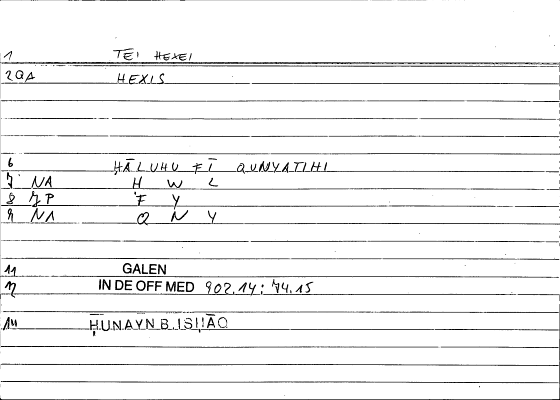 1 TEI HEXEI
2GA HEXIS
6 ḤĀLUHU FĪ QUNYATIHI
7 NA Ḥ W L
8 JP F Y
9 NA Q N Y
11 GALEN
12 IN DE OFF MED 902.14: 74.15
14 ḤUNAYN B. ISḤĀQ